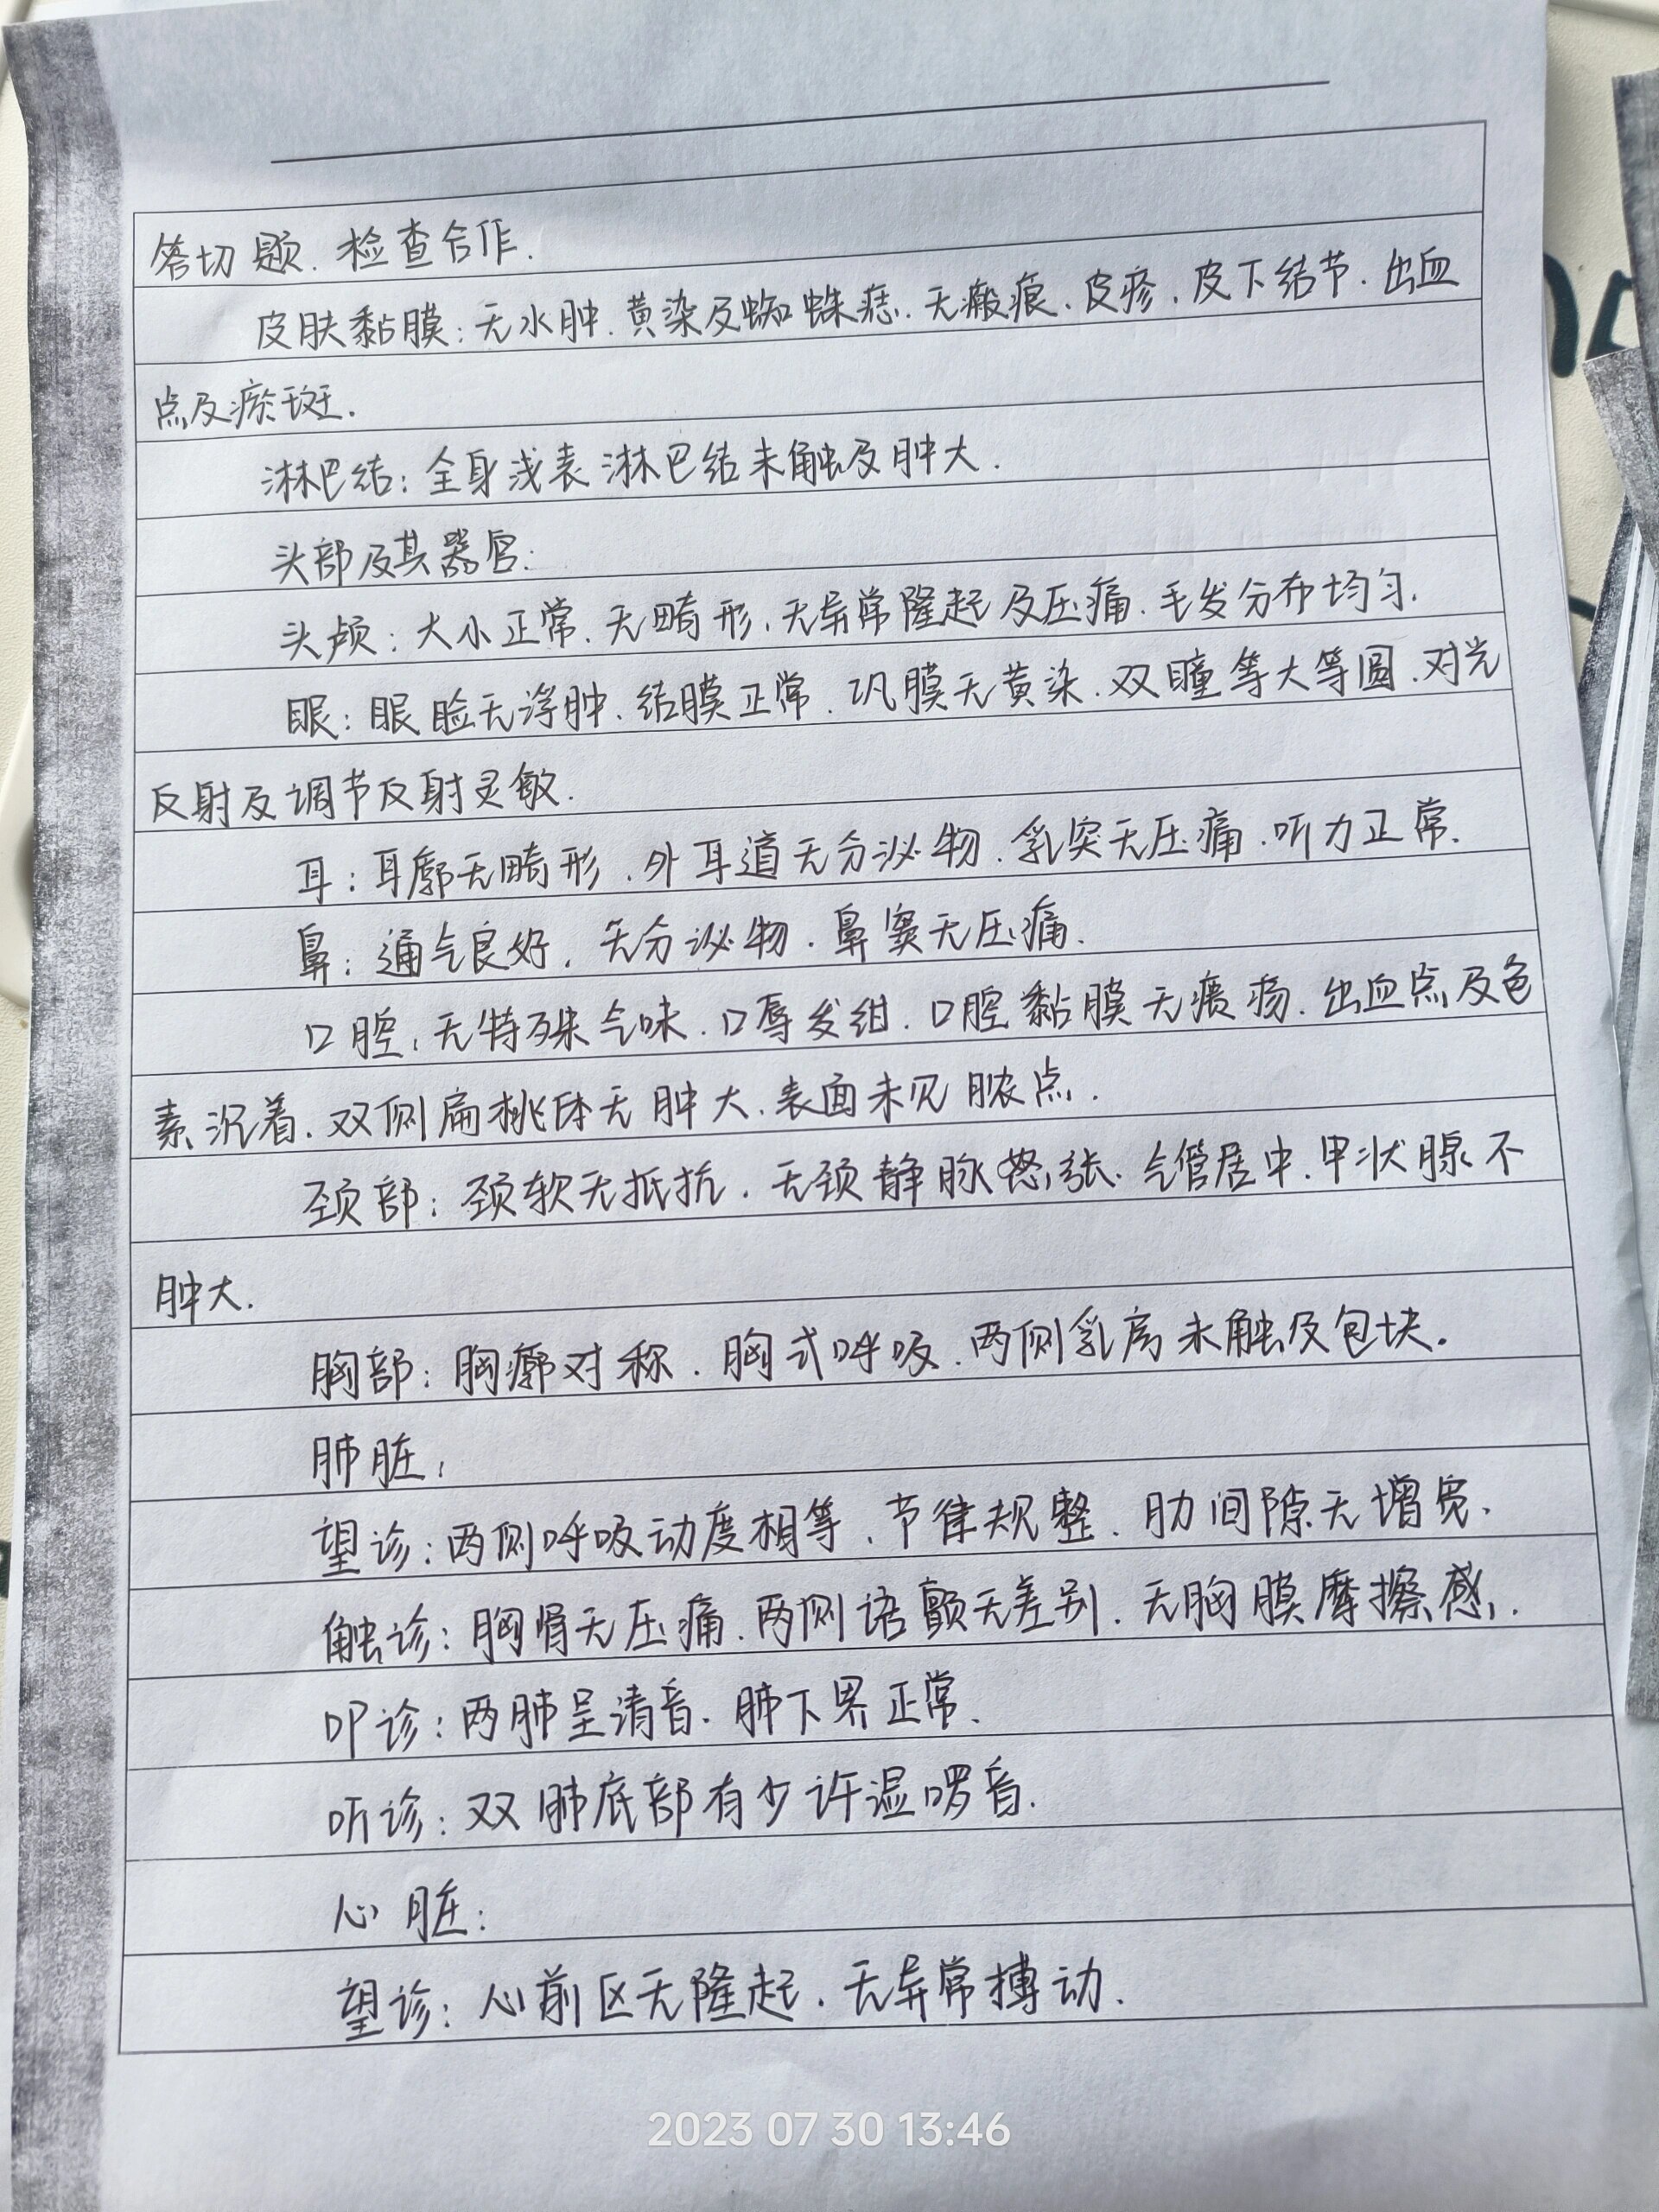 答切题.检查合作.
皮肤黏膜:无水肿.黄染及蜘蛛痣.无瘢痕、皮疹、皮下结节.出血
点及瘀斑.
淋巴结:全身浅表淋巴结未触及肿大.
头部及其器官:
头颅:大小正常.无畸形.无异常隆起及压痛.毛发分布均匀.
眼:眼睑无浮肿.结膜正常.巩膜无黄染.双瞳等大等圆.对光
反射及调节反射灵敏.
耳:耳廓无畸形.外耳道无分泌物.乳突无压痛.听力正常.
鼻:通气良好,无分泌物.鼻窦无压痛.
口腔:无特殊气味.口唇发绀.口腔黏膜无溃疡.出血点及色
素沉着.双侧扁桃体无肿大.表面未见脓点.
颈部:颈软无抵抗.无颈静脉怒张.气管居中.甲状腺不
肿大.
胸部:胸廓对称.胸式呼吸.两侧乳房未触及包块.
肺脏:
望诊:两侧呼吸动度相等.节律规整.肋间隙无增宽.
触诊:胸骨无压痛.两侧语颤无差别.无胸膜摩擦感.
叩诊:两肺呈清音.肺下界正常.
听诊:双肺底部有少许湿啰音.
心脏:
望诊:心前区无隆起.无异常搏动.
2023 07 30 13:46